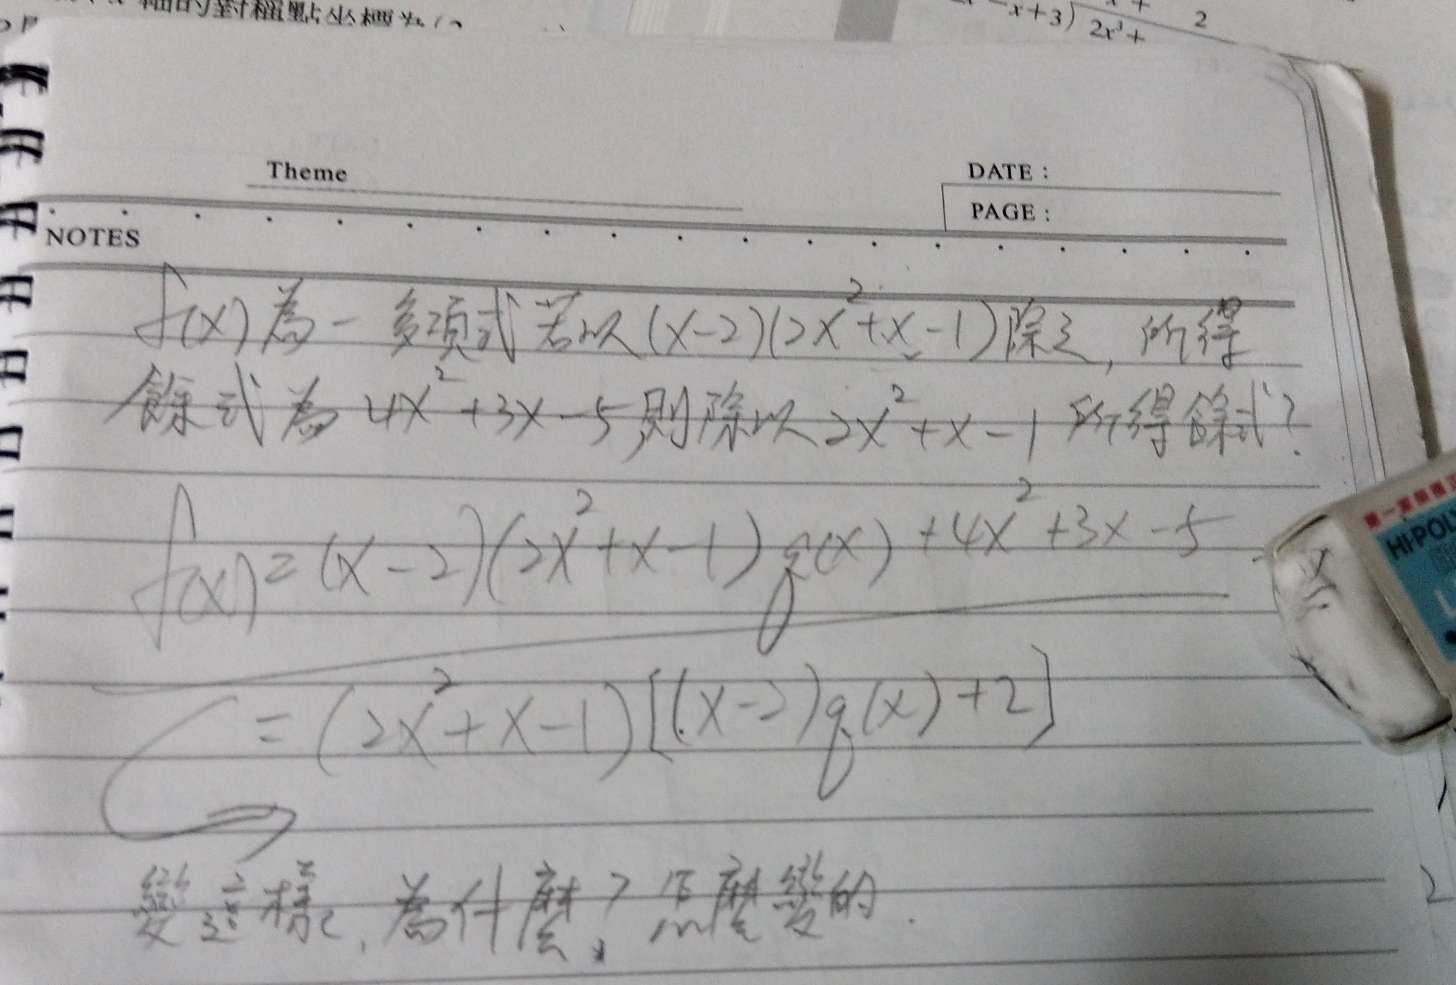 x+3) 2x³+
2
Theme
DATE :
PAGE :
NOTES
f(x)為一多項式若以(x-2)(2x²+x-1)除之,所得
餘式為4x²+3x-5,則除以2x²+x-1所得餘式?
f(x)=(x-2)(2x²+x-1)q(x)+4x²+3x-5
=(2x²+x-1)[(x-2)q(x)+2]
變這樣,為什麼?怎麼變的.
HI-PO
2